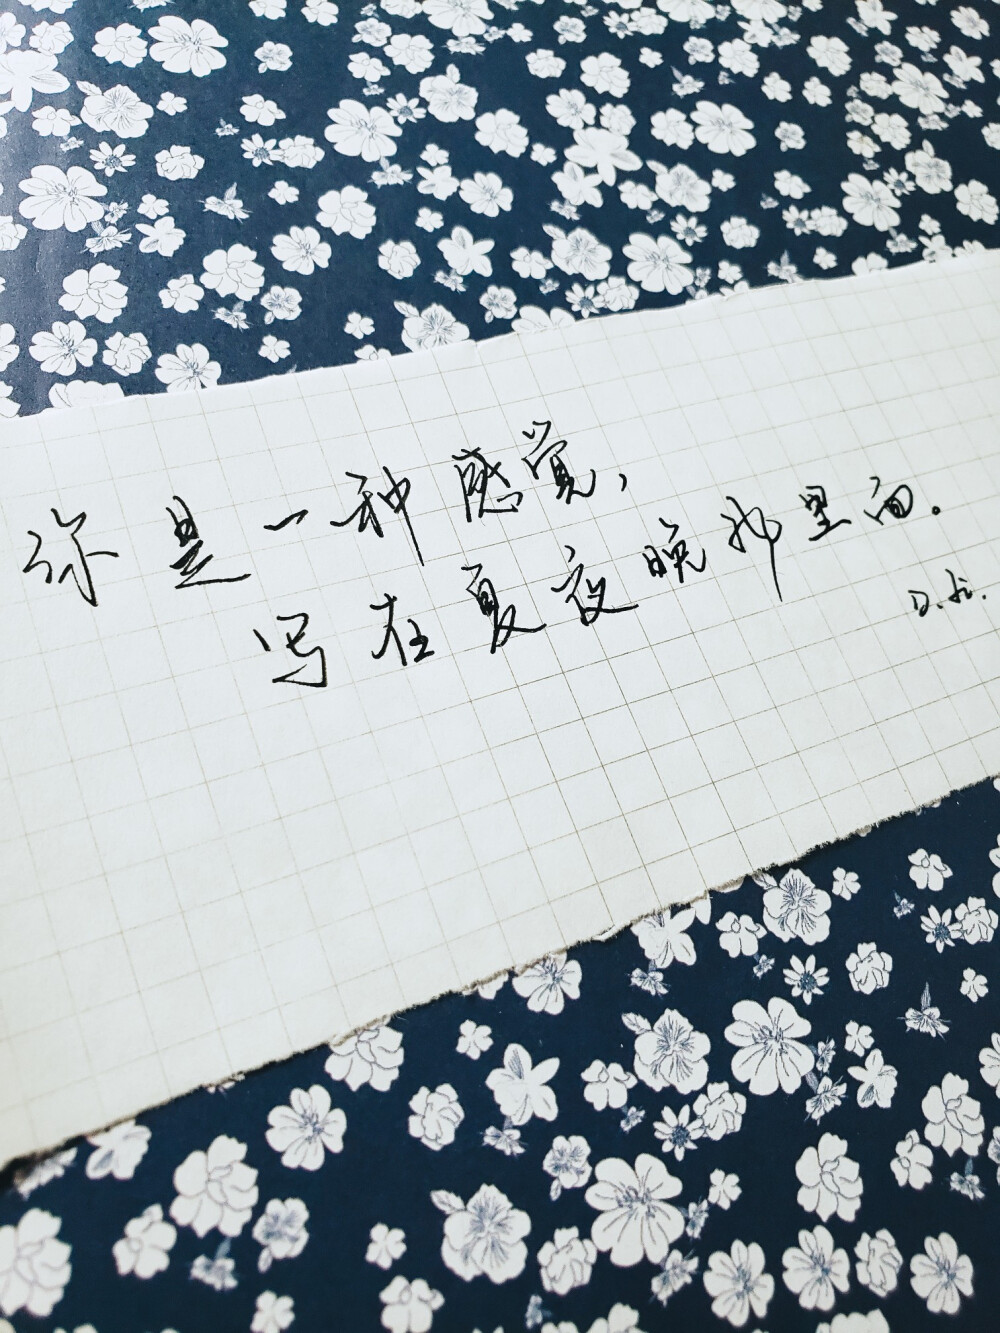 你是一种感觉，
写在夏夜晚风里面。